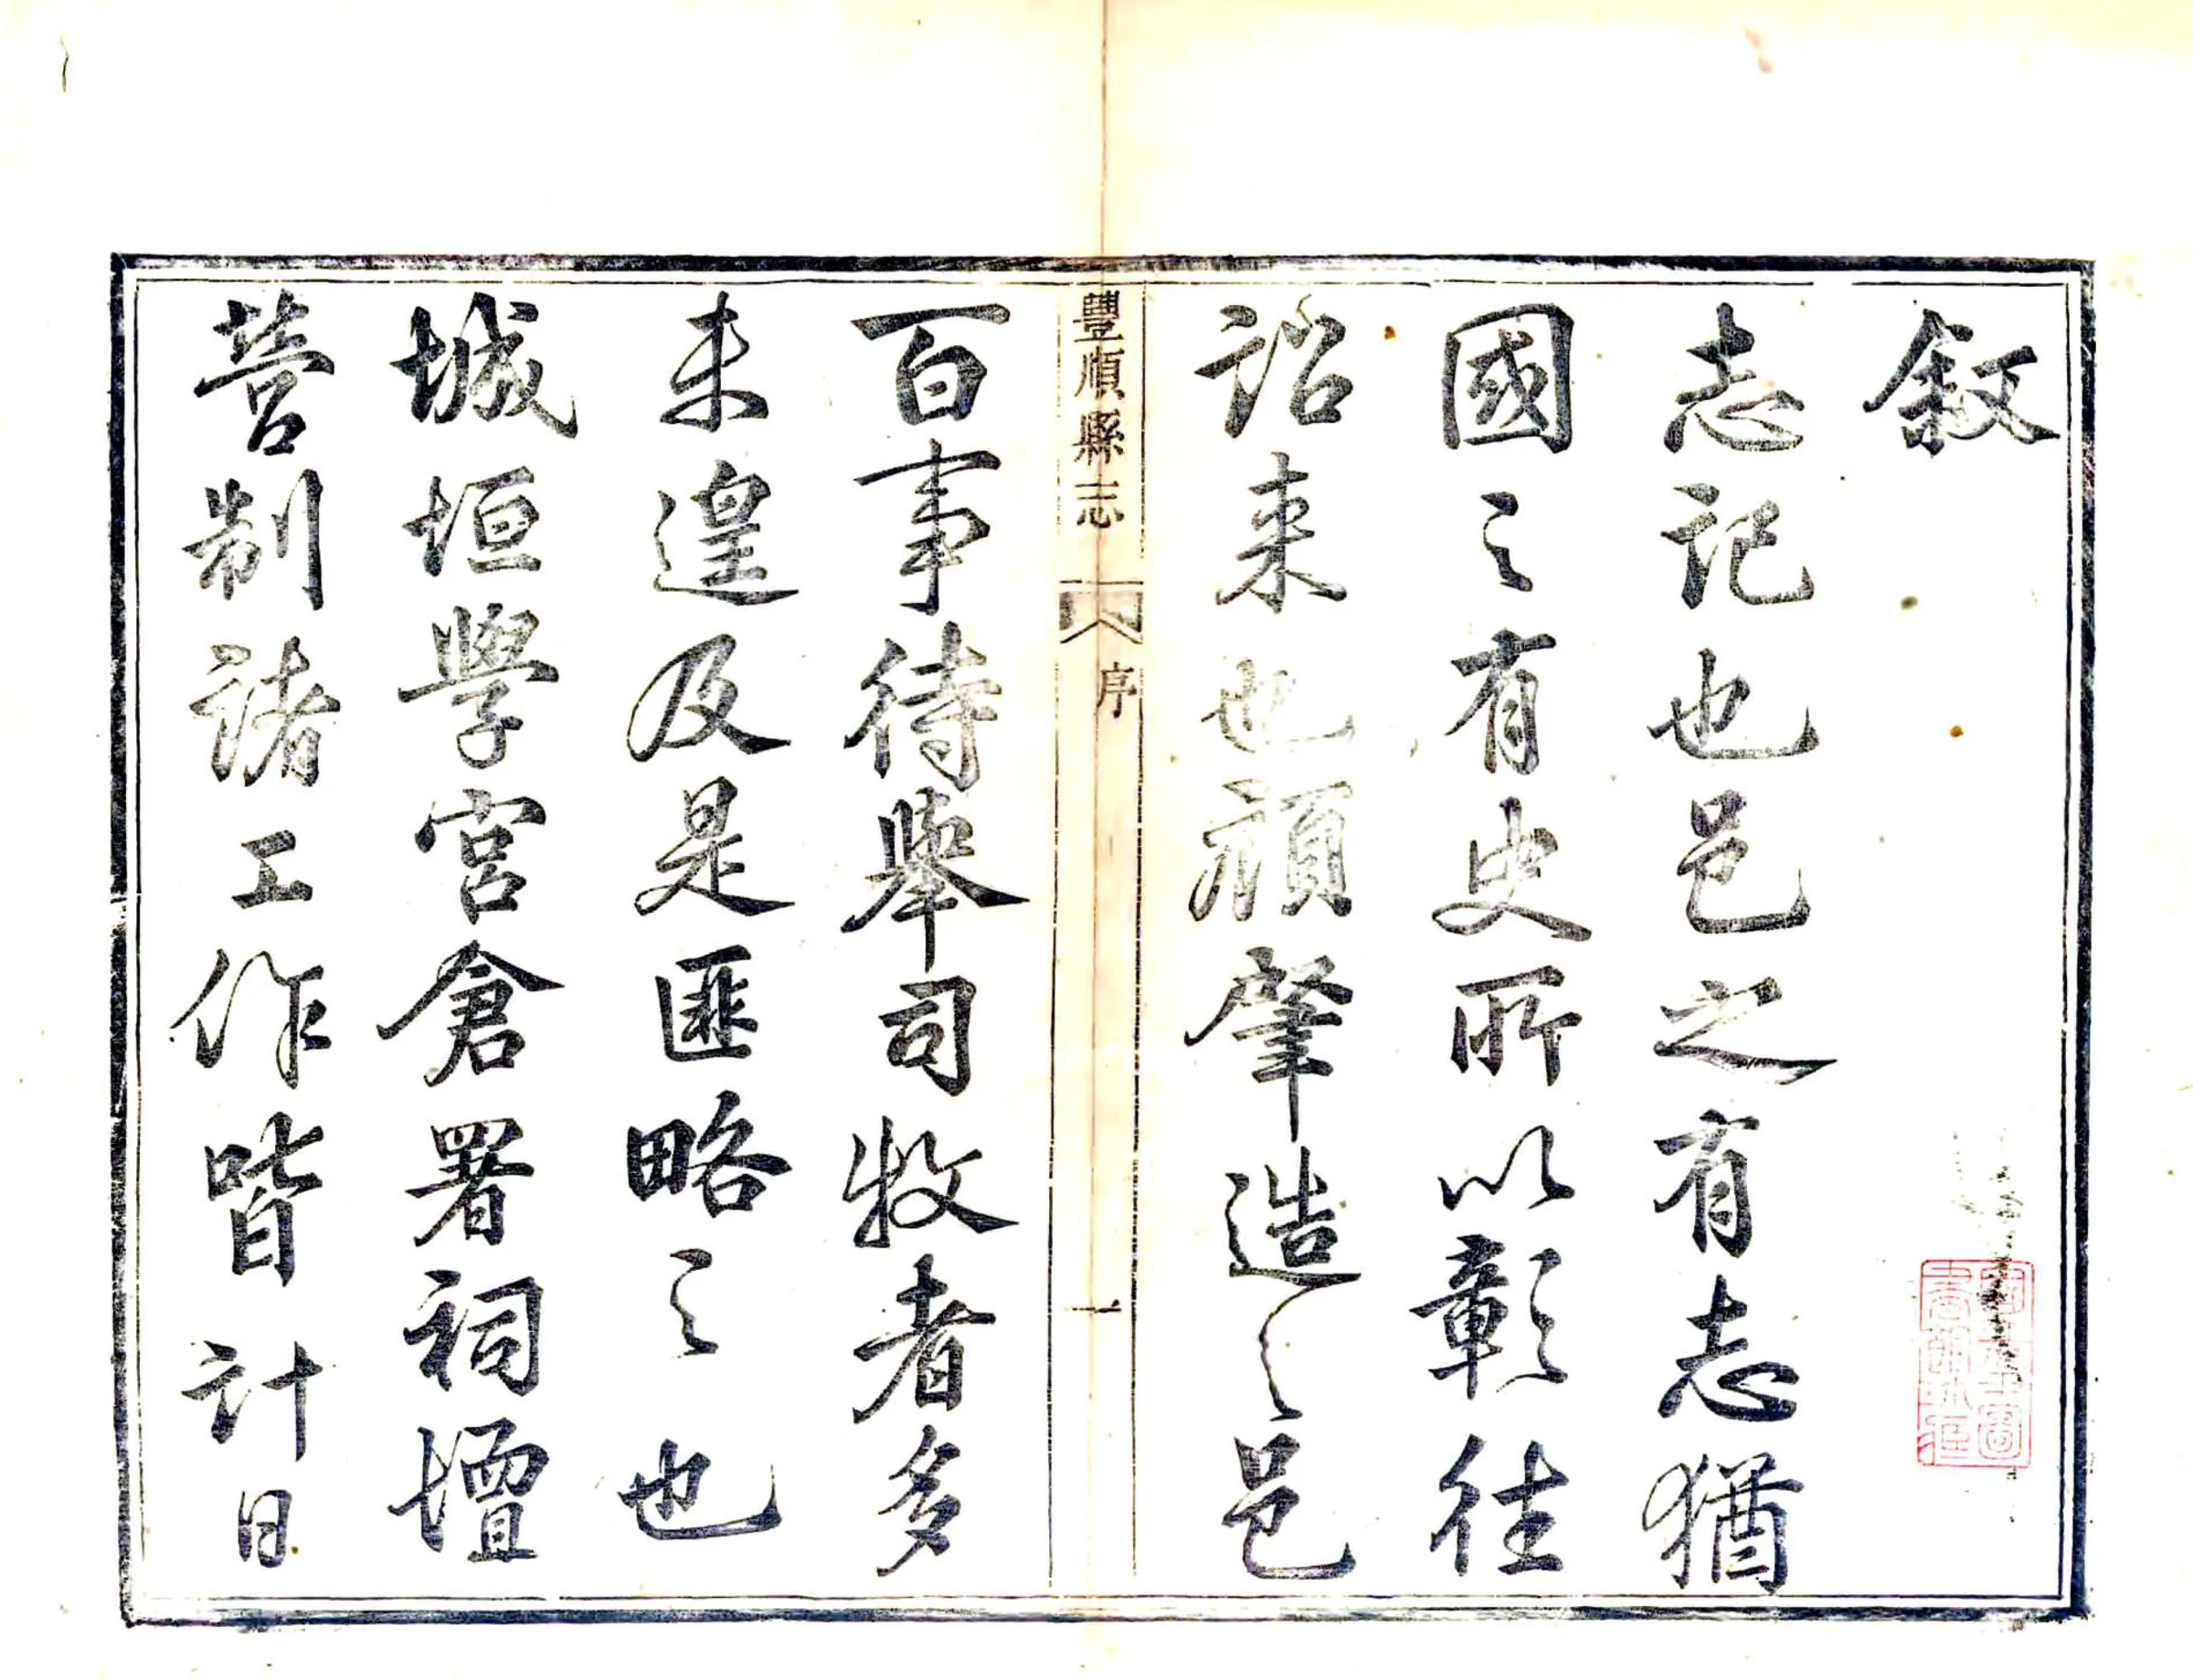 敘
志記也邑之有志猶
國之有史所以彰往
詔来也顧肇造之邑
豐順縣志
序
一
百事待舉司牧者多
未遑及是匪略之也
城垣學宮倉署祠壇
營制諸工作皆計日